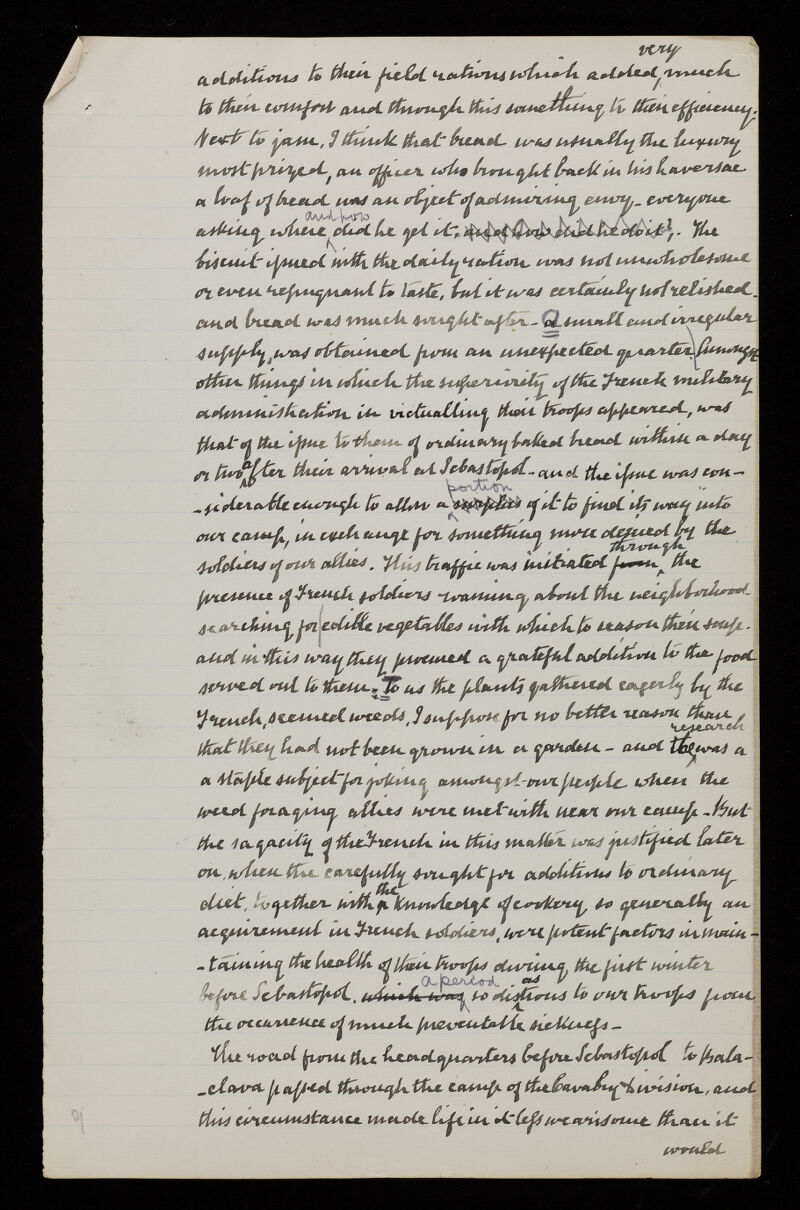 very
additions to their field rations which added much
to their comfort and through this something to their efficiency.
Next to jam, I think that bread was usually the luxury
most prized, an officer who brought back in his haversac
a loaf of bread was an object of admiring envy - everyone
and how
asking where did he get it, and how did he do it?. The
biscuit issued with the daily ration was not unwholesome
or even repugnant to taste, but it was certainly not relished -
and bread was much sought after - a small and irregular
supply, was obtained from an unexpected quarter. Amongst
other things in which the superiority of the French military
administration in victualling their troops appeared, was
that of the issue to them of ordinary baked bread within a day
or two after their arrival at Sebastopol - and the issue was con-
portion
-siderable enough to allow a surplus of it to find its way into
our camp, in exchange for something more desired by the
soldiers of our allies. This traffic was initiated from the
through
presence of French soldiers roaming about the neighborhood
searching for edible vegetables with which to season their soup -
and in this way they procured a grateful addition to the food
served out to them. To us the plants gathered eagerly by the
French, seemed weeds, I suppose for no better reason than
research
that they had not been grown in a garden - and the was a
a staple subject for joking amongst our people when the
weed foraging allies were met with near our camp - But
the sagacity of the French in this matter was justified later
on, when the carefully sought for additions to ordinary
the
diet, together with a knowledge of cookery so generally an
acquirement in French soldiers, were potent factors in main-
-taining the health of their troops during the first winter
a period as
before Sebastopol, which was so distrous to our troops from
the occurrence of much preventable sickness -
The road from the headquarters before Sebastopol to Bala-
-clava passed through the camp of the Cavalry Division, and
this circumstance made life in it less wearisome than it
would
9